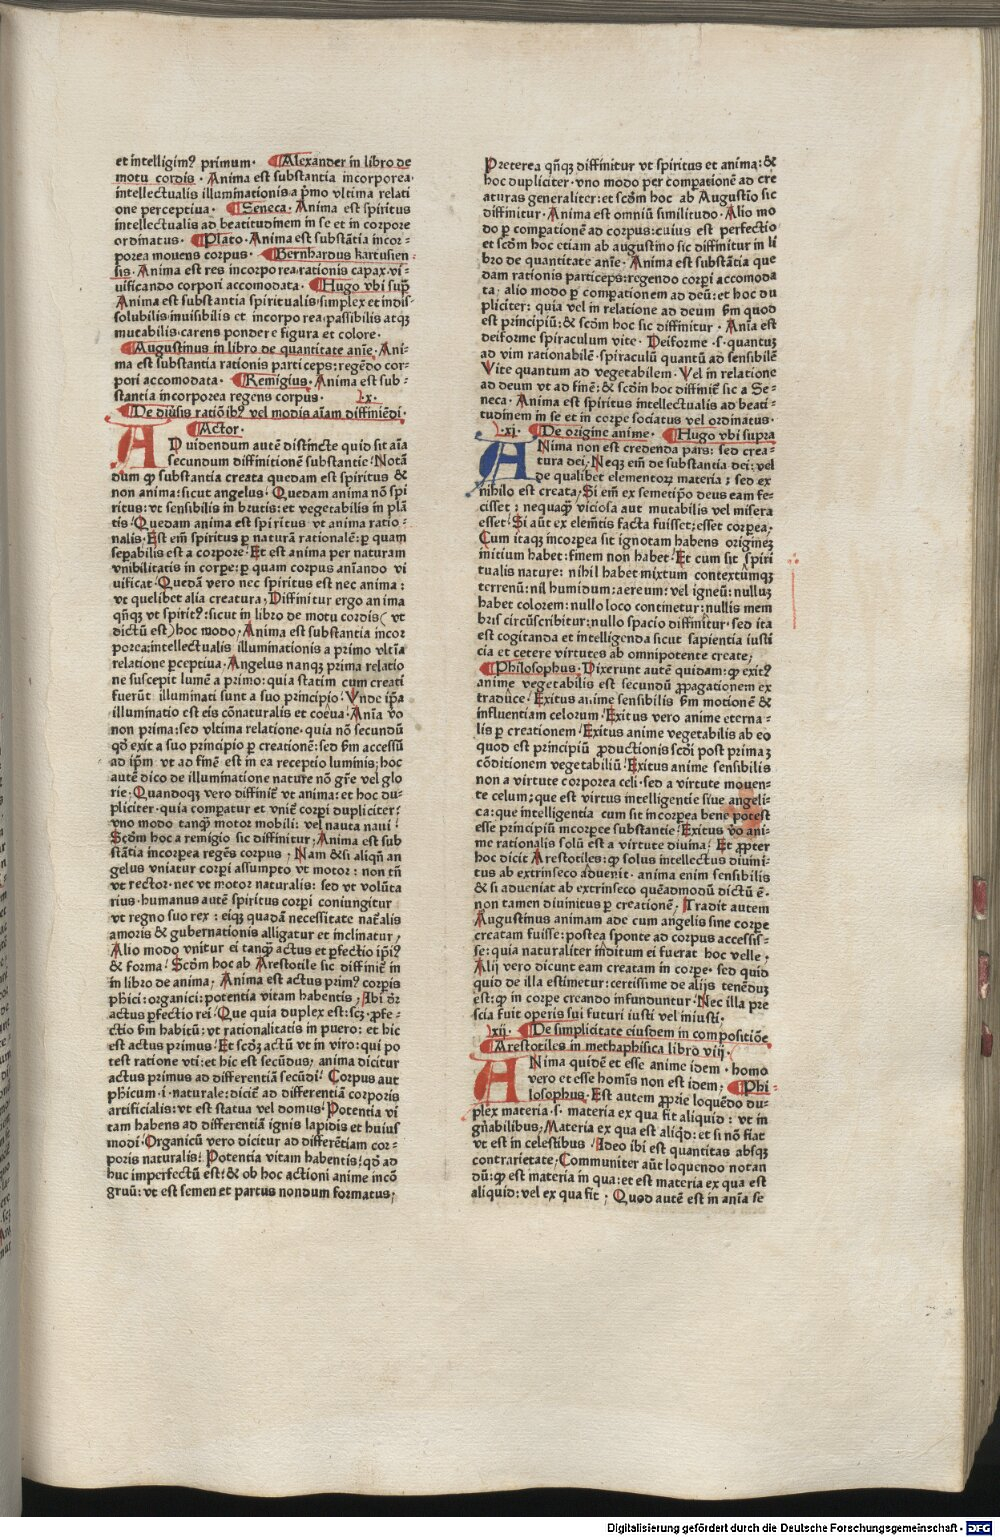 et intelligimꝰ primum. Alexander in libro de
motu cordis. Anima est substantia incorporea.
intellectualis illuminationis a pͥmo vltima relati
one perceptiua. Seneca. Anima est spiritus
intellectualis ad beatitudinem in se et in corpore
ordinatus. Plato. Anima est substātia incor⸗
porea mouens corpus. Bernhardus kartusien
sis. Anima est res incorporea rationis capax. vi⸗
uificando corpori accomodata. Hugo vbi supͣ
Anima est substantia spiritualis. simplex et indis
solubilis. inuisibilis et incorporea. passibilis atqꝫ
mutabilis. carens pondere figura et colore.
Augustinus in libro de quantitate anīe. Ani⸗
ma est substantia rationis particeps: regēdo cor⸗
pori accomodata. Remigius. Anima est sub⸗
stantia incorporea regens corpus. .x.
De diuͥsis ratiōibꝰ vel modis aīam diffiniēdi.
Actor.
AD videndum autē distincte quid sit aīa
secundum diffinitionē substantie. Notā
dum ꝙ substantia creata quedam est spiritus &
non anima: sicut angelus. Quedam anima nō spi
ritus: vt sensibilis in brutis: et vegetabilis in plā
tis. Quedam anima est spiritus vt anima ratio⸗
nalis. Est em̄ spiritus ꝑ naturā rationalē: ꝑ quam
seꝑabilis est a corpore. Et est anima per naturam
vnibilitatis in corpe: ꝑ quam corpus aniando vi
uificat. Quedā vero nec spiritus est nec anima:
vt quelibet alia creatura. Diffinitur ergo anima
qn̄qꝫ vt spiritꝰ: sicut in libro de motu cordis (vt
dictū est) hoc modo. Anima est substantia incor
porea: intellectualis illuminationis a primo vltīa
relatione ꝑceptiua. Angelus nanqꝫ prima relatio
ne suscepit lumē a primo: quia statim cum creati
fuerūt illuminati sunt a suo principio. Vnde ip̄a
illuminatio est eis cōnaturalis et coeua. Anīa vͦo
non prima: sed vltima relatione. quia nō secundū
qd̓ exit a suo principio ꝑ creationē: sed ẜm accessū
ad ip̄m vt ad finē est in ea receptio luminis: hoc
autē dico de illuminatione nature nō gr̄e vel glo
rie. Quandoqꝫ vero diffinit̃ vt anima: et hoc du⸗
pliciter. quia compatur et vnit̃ corpi dupliciter:
vno modo tanqꝫ̃ motor mobili: vel nauta naui.
Scdm̄ hoc a remigio sic diffinitur. Anima est sub
stātia incorꝑea regēs corpus. Nam & si aliqn̄ an
gelus vniatur corpi assumpto vt motor: non tn̄
vt rector. nec vt motor naturalis: sed vt volūta
rius. humanus autē spiritus corpi coniungitur
vt regno suo rex: eiqꝫ quadā necessitate nat̃alis
amoris & gubernationis alligatur et inclinatur.
Alio modo vnitur ei tanqꝫ̃ actus et ꝑfectio ip̄iꝰ
& forma. Scdm̄ hoc ab Arestotile sic diffinit̃ in
in libro de anima. Anima est actus primꝰ corpis
ph̓ici: organici: potentia vitam habentis. Ibi d̓r
actus ꝑfectio rei. Que quia duplex est: scꝫ ꝑfe⸗
ctio ẜm habitū: vt rationalitatis in puero: et hic
est actus primus. Et scdꝫ actū vt in viro: qui po
test ratione vti: et hic est secūdus. anima dicitur
actus primus ad differentiā secūdi. Corpus aut̃
ph̓icum .i. naturale: dicit̃ ad differentiā corporis
artificialis: vt est statua vel domus. Potentia vi
tam habens ad differentiā ignis lapidis et huius
modi. Organicū vero dicitur ad differētiam cor⸗
poris naturalis. Potentia vitam habentis: qd̓ ad
huc imperfectū est: & ob hoc actioni anime incō
gruū: vt est semen et partus nondum formatus.
Preterea qn̄qꝫ diffinitur vt spiritus et anima: &
hoc dupliciter. vno modo per compationē ad cre
aturas generaliter: et scdm̄ hoc ab Augustīo sic
diffinitur. Anima est omniū similitudo. Alio mo
do ꝑ compationē ad corpus: cuius est perfectio
et scdm̄ hoc etiam ab augustino sic diffinitur in li
bro de quantitate anīe. Anima est substātia que
dam rationis particeps: regendo corpi accomoda
ta. alio modo ꝑ compationem ad deū: et hoc du
pliciter: quia vel in relatione ad deum ẜm quod
est principiū: & scdm̄ hoc sic diffinitur. Anīa est
deiforme spiraculum vite. Deiforme .s. quantuꝫ
ad vim rationabilē. spiraculū quantū ad sensibilē
Vite quantum ad vegetabilem. Vel in relatione
ad deum vt ad finē: & scdm̄ hoc diffinit̃ sic a Se⸗
neca. Anima est spiritus intellectualis ad beati⸗
tudinem in se et in corpe sociatus vel ordinatus.
.xi. De origine anime. Hugo vbi supra
ANima non est credenda pars: sed crea⸗
tura dei. Neqꝫ em̄ de substantia dei: vel
de qualibet elementoꝝ materia; sed ex
nihilo est creata. Si em̄ ex semetip̄o deus eam fe⸗
cisset: nequaqꝫ̃ viciosa aut mutabilis vel misera
esset. Si aūt ex elemētis facta fuisset: esset corꝑea.
Cum itaqꝫ incorꝑea sit ignotam habens origineꝫ
initium habet: finem non habet. Et cum sit spiri
tualis nature: nihil habet mixtum contextūmqꝫ
terrenū: nil humidum: aereum: vel igneū: nulluꝫ
habet colorem: nullo loco continetur: nullis mem
bris circūscribitur: nullo spacio diffinitur. sed ita
est cogitanda et intelligenda sicut sapientia iusti
cia et cetere virtutes ab omnipotente create.
Philosophus. Dixerunt autē quidam: ꝙ exitꝰ
anime vegetabilis est secundū ꝓpagationem ex
traduce. Exitus anime sensibilis ẜm motionē &
influentiam celorum. Exitus vero anime eterna⸗
lis ꝑ creationem. Exitus anime vegetabilis ab eo
quod est principiū ꝓductionis scd̓i post primaꝫ
cōditionem vegetabiliū. Exitus anime sensibilis
non a virtute corporea celi. sed a virtute mouen⸗
te celum; que est virtus intelligentie siue angeli⸗
ca: que intelligentia cum sit incorꝑea bene potest
esse principiū incorꝑee substantie. Exitus vͦo ani⸗
me rationalis solū est a virtute diuina. Et ꝓpter
hoc dicit Arestotiles: ꝙ solus intellectus diuini⸗
tus ab extrinseco aduenit. anima enim sensibilis
& si adueniat ab extrinseco quēadmodū dictū ē.
non tamen diuinitus ꝑ creationē. Tradit autem
Augustinus animam ade cum angelis sine corpe
creatam fuisse: postea sponte ad corpus accessis⸗
se: quia naturaliter inditum ei fuerat hoc velle.
Alij vero dicunt eam creatam in corpe. sed quid
quid de illa estimetur: certissime de alijs tenēduꝫ
est: ꝙ in corpe creando infunduntur. Nec illa pre
scia fuit operis sui futuri iusti vel iniusti.
.xij. De simplicitate eiusdem in compositiōe
Arestotiles in methaphisica libro viij.
ANima quidē et esse anime idem. homo
vero et esse homīs non est idem. Phi⸗
losophus. Est autem ꝓprie loquēdo du⸗
plex materia .s. materia ex qua fit aliquid: vt in
gn̄abilibus. Materia ex qua est aliqd̓: et si nō fiat
vt est in celestibus. Ideo ibi est quantitas absqꝫ
contrarietate. Communiter aūt loquendo notan
dū: ꝙ est materia in qua: et est materia ex qua est
aliquid: vel ex qua fit. Quod autē est in anīa se
Digitalisierung gefördert durch die Deutsche Forschungsgemeinschaft - DFG